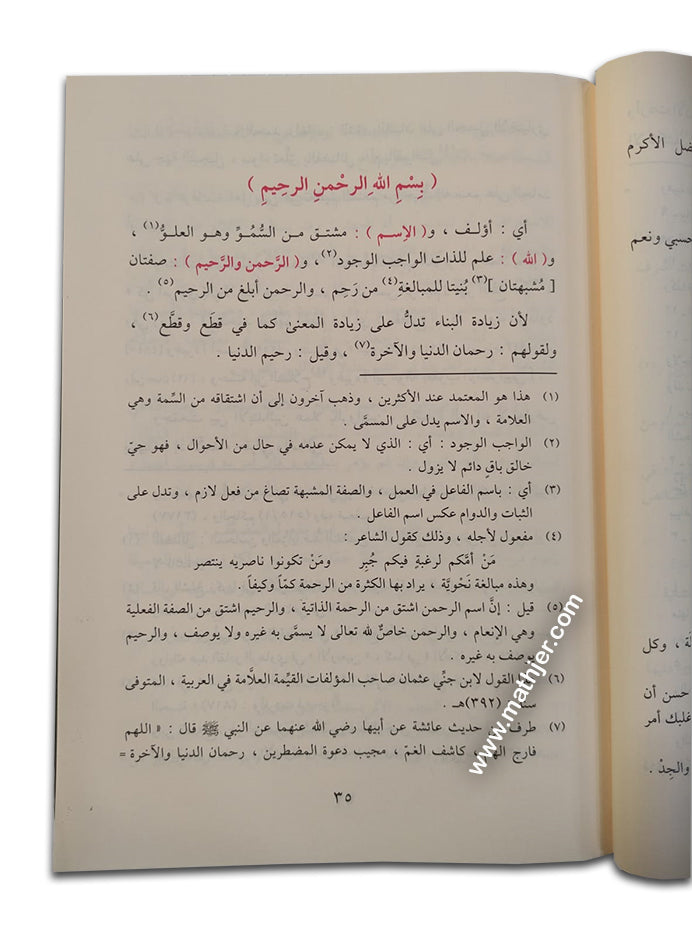 ( بِسْمِ اللهِ الرحْمنِ الرحِيمِ )
أي : أؤلف ، و( الاِسم ) : مشتق من السُّمُوِّ وهو العلوُّ(١) ،
و( الله ) : علم للذات الواجب الوجود(٢)، و( الرَّحمن والرَّحيم ) : صفتان
[ مُشبهتان ](٣) بُنيتا للمبالغةِ(٤) من رَحِم ، والرحمن أبلغ من الرحيم(٥) .
لأن زيادة البناء تدلُّ على زيادة المعنىٰ كما في قطَع وقطَّع(٦) ،
ولقولهم : رحمان الدنيا والآخرة(٧) ، وقيل : رحيم الدنيا .
(١) هذا هو المعتمد عند الأكثرين ، وذهب آخرون إلى أن اشتقاقه من السِّمة وهي
العلامة ، والاسم يدل على المسمَّى .
(٢) الواجب الوجود : أي : الذي لا يمكن عدمه في حال من الأحوال ، فهو حيّ
خالق باقٍ دائم لا يزول .
(٣) أي : باسم الفاعل في العمل ، والصفة المشبهة تصاغ من فعل لازم ، وتدل على
الثبات والدوام عكس اسم الفاعل .
(٤) مفعول لأجله ، وذلك كقول الشاعر :
مَنْ أمَّكم لرغبةٍ فيكم جُبِر ومَنْ تكونوا ناصريه ينتصر
وهذه مبالغة نَحْويَّة ، يراد بها الكثرة من الرحمة كمّاً وكيفاً .
(٥) قيل : إنَّ اسم الرحمن اشتق من الرحمة الذاتية ، والرحيم اشتق من الصفة الفعلية
وهي الإنعام ، والرحمن خاصٌ لله تعالى لا يسمَّى به غيره ولا يوصف ، والرحيم
يوصف به غيره .
(٦) القول لابن جنِّي عثمان صاحب المؤلفات القيِّمة العلاَّمة في العربية ، المتوفى
(٣٩٢)هـ .
(٧) طرف حديث عائشة عن أبيها رضي الله عنهما عن النبي ﷺ قال : « اللهم
فارج الهم ، كاشف الغمّ ، مجيب دعوة المضطرين ، رحمان الدنيا والآخرة =
٣٥
الأكرم
حسبي ونعم
، وكل
حسن أن
أمر
والجِدْ .
www.mathjer.com